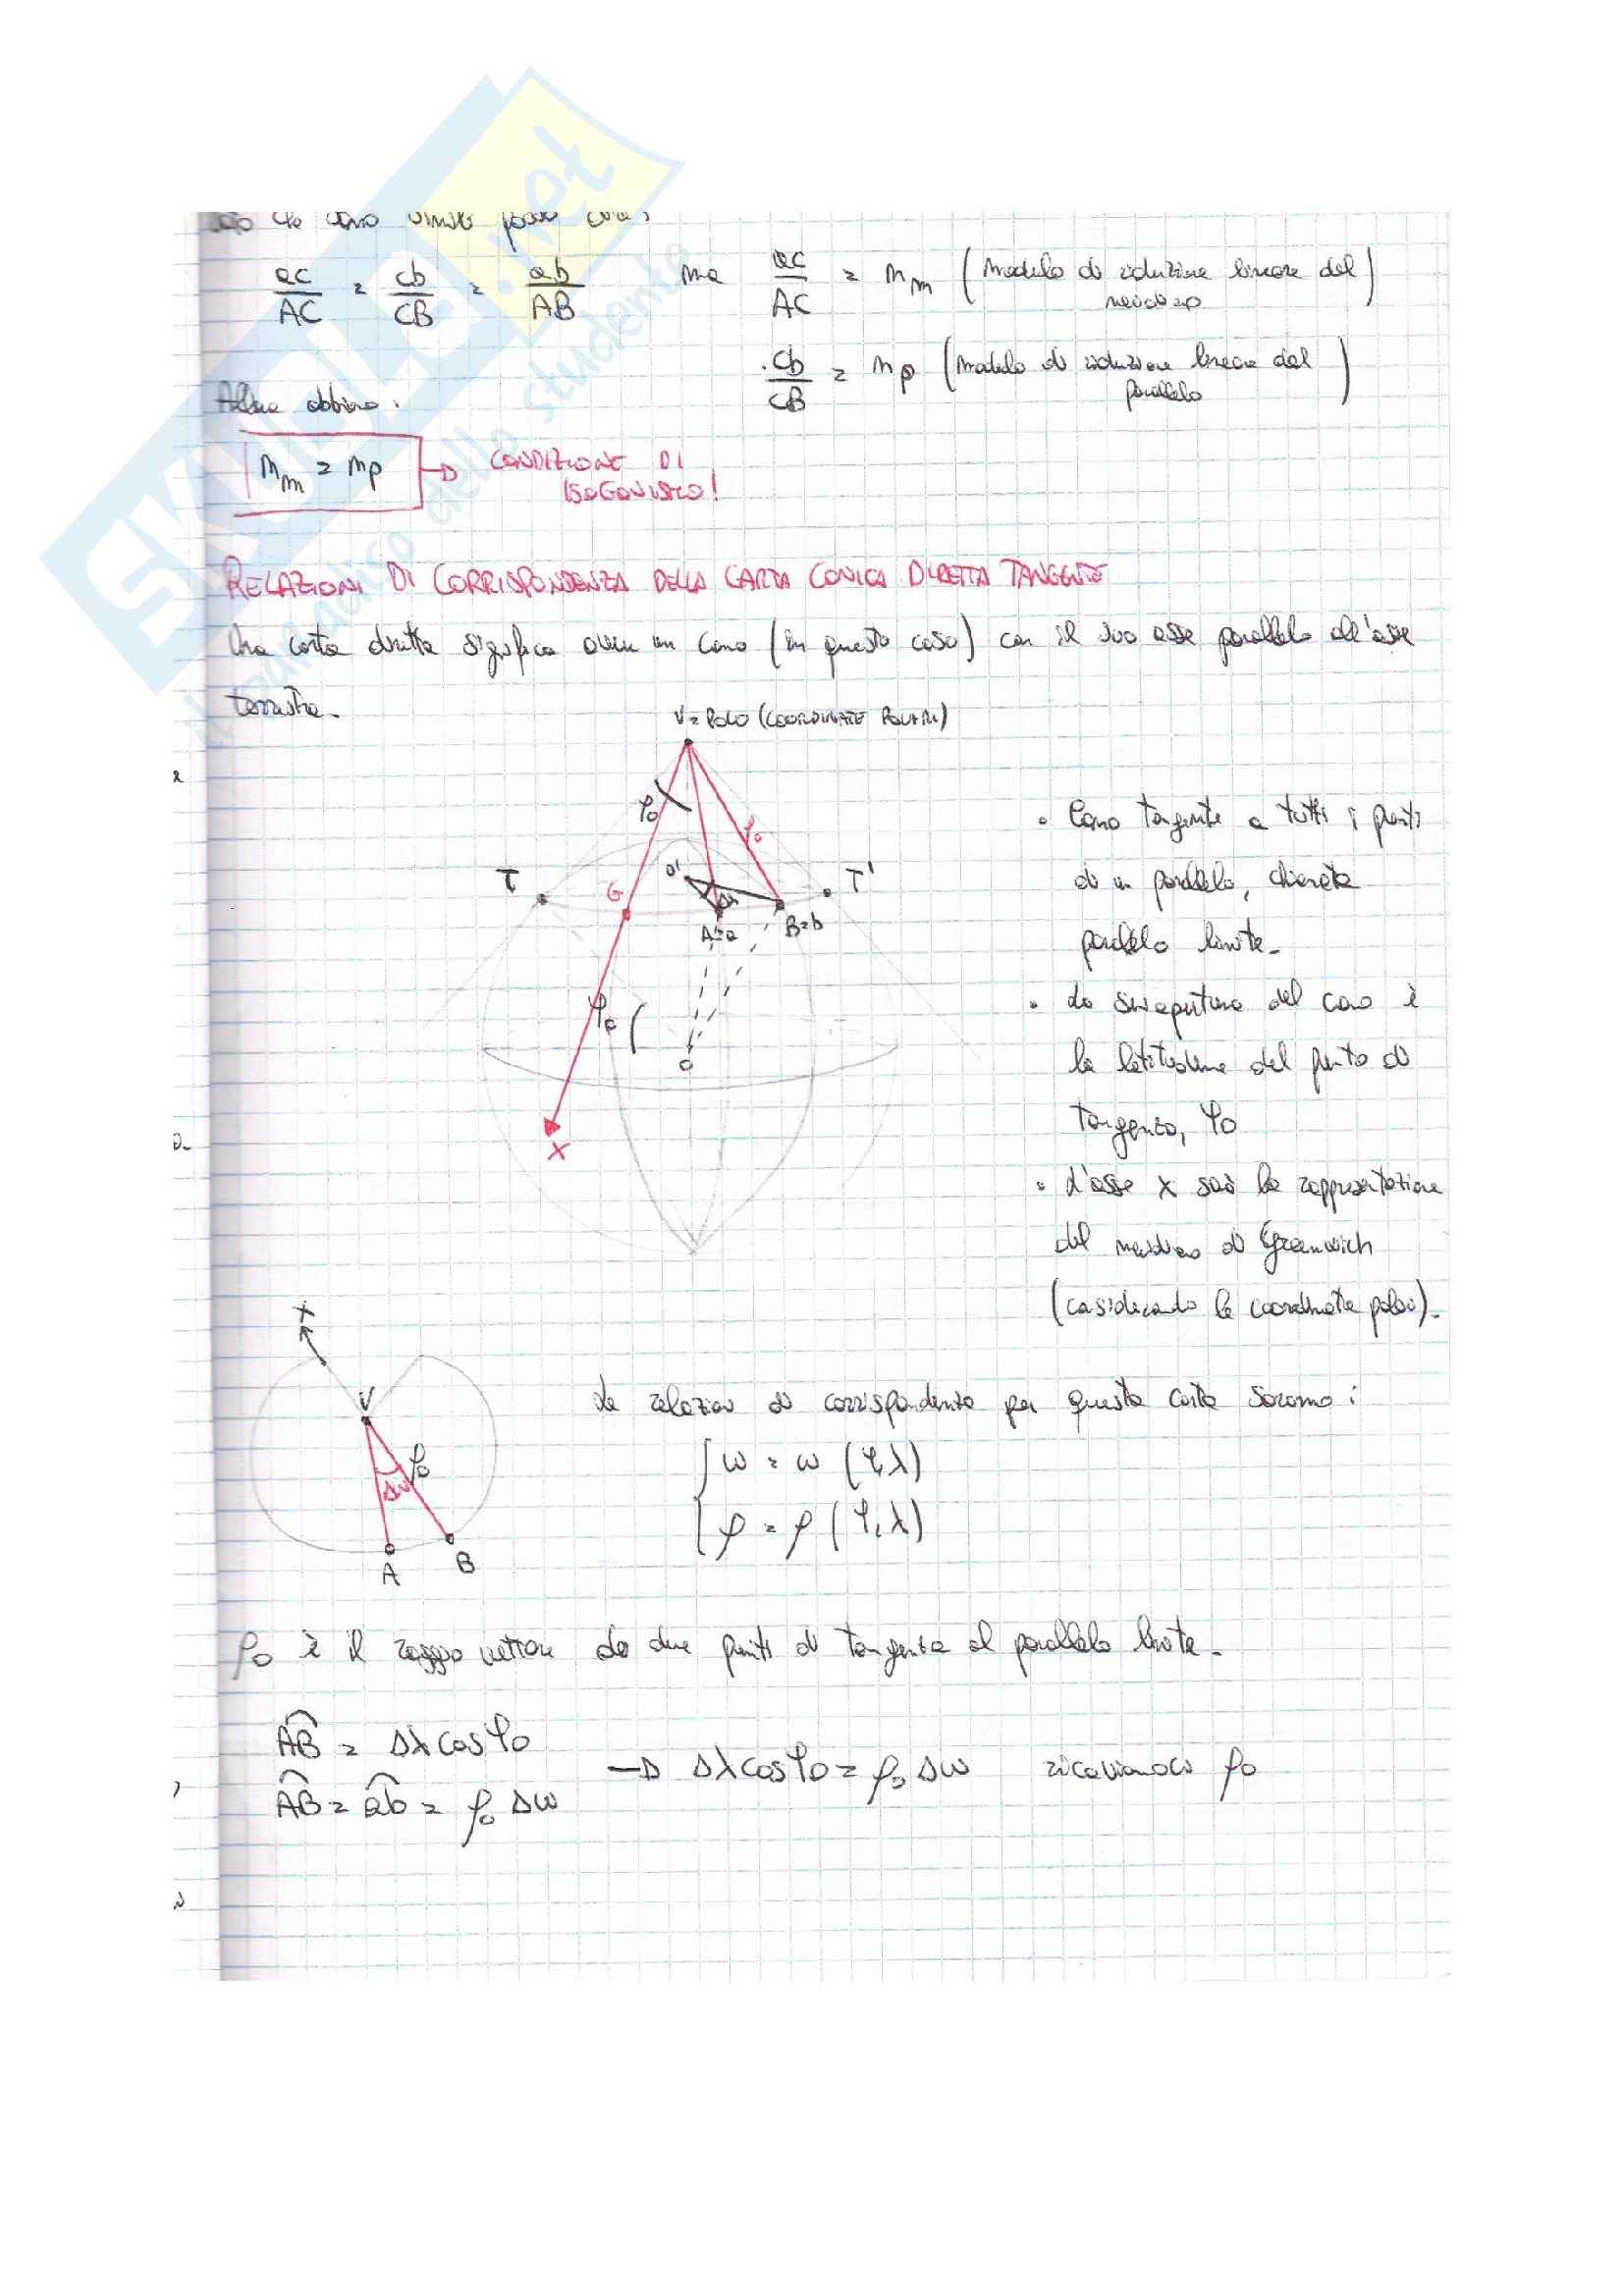 ac/AC = cb/CB = ab/AB ma ac/AC = mm (modulo di riduzione lineare del meridiano)
cb/CB = mp (modulo di riduzione lineare del parallelo)
Allora abbiamo:
mm = mp → CONDIZIONE DI
ISOGONISMO!
RELAZIONI DI CORRISPONDENZA DELLA CARTA CONICA DIRETTA TANGENTE
Una carta diretta significa avere un cono (in questo caso) con il suo asse parallelo all'asse
terrestre.
V = POLO (COORDINATE POLARI)
φ0
ρ0
T
T'
G
O'
Δλ
A≡a
B≡b
φ0
O
X
• Cono tangente a tutti i punti
di un parallelo, chiamato
parallelo limite.
• La semiapertura del cono è
la latitudine del punto di
tangenza, φ0
• L'asse X sarà la rappresentazione
del meridiano di Greenwich
(considerando le coordinate polari).
X
V
ρ0
Δω
A
B
Le relazioni di corrispondenza per questa carta saranno:
ω = ω (φ,λ)
ρ = ρ (φ,λ)
ρ0 è il raggio vettore da due punti di tangenza al parallelo limite.
AB = Δλ cosφ0
→ Δλcosφ0 = ρ0 Δω ricaviamoci ρ0
AB = ab = ρ0 Δω
SKUOLA.net